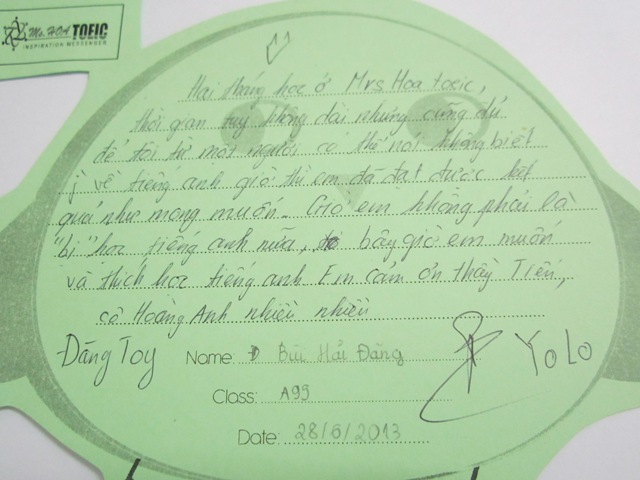 Ms. HOA TOEIC
INSPIRATION MESSENGER
Hai tháng học ở Mrs Hoa toeic,
thời gian tuy không dài nhưng cũng đủ
để tôi từ một người có thể nói không biết
j về tiếng anh giờ thì em đã đạt được kết
quả như mong muốn. Giờ em không phải là
"bị" học tiếng anh nữa, bây giờ em muốn
và thích học tiếng anh Em cảm ơn thầy Tiến,
cô Hoàng Anh nhiều nhiều
Đăng Toy
Name: Bùi Hải Đăng
YoLo
Class: A99
Date: 28/6/2013